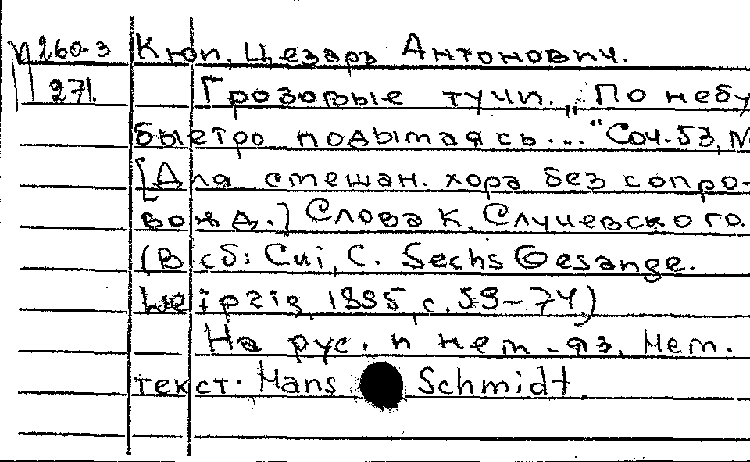 260-3 Кюи, Цезарь Антонович.
271. Грозовые тучи. „По небу
быстро подымаясь..." Соч. 53, №
[Для смешан. хора без сопро-
вожд.] Слова К. Случевского.
(В сб: Cui, C. Sechs Gesange.
Leipzig, 1895, с. 59-74)
На рус. и нем. яз. Нем.
текст. Hans Schmidt.